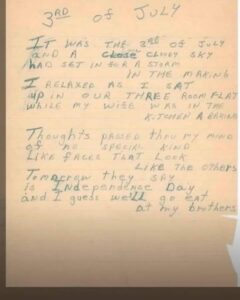 3RD of JULY
IT WAS THE 3RD OF JULY
AND A CLOSE CLOUDY SKY
HAD SET IN FOR A STORM
IN THE MAKING
I RELAXED AS I SAT
UP IN OUR THREE ROOM FLAT
WHILE MY WIFE WAS IN THE
KITCHEN A BAKING
Thoughts passed thru my mind
of no special kind
LIKE FACES THAT LOOK
LIKE THE OTHERS
Tomorrow they say
is Independence Day
and I guess we'll go eat
at my brothers